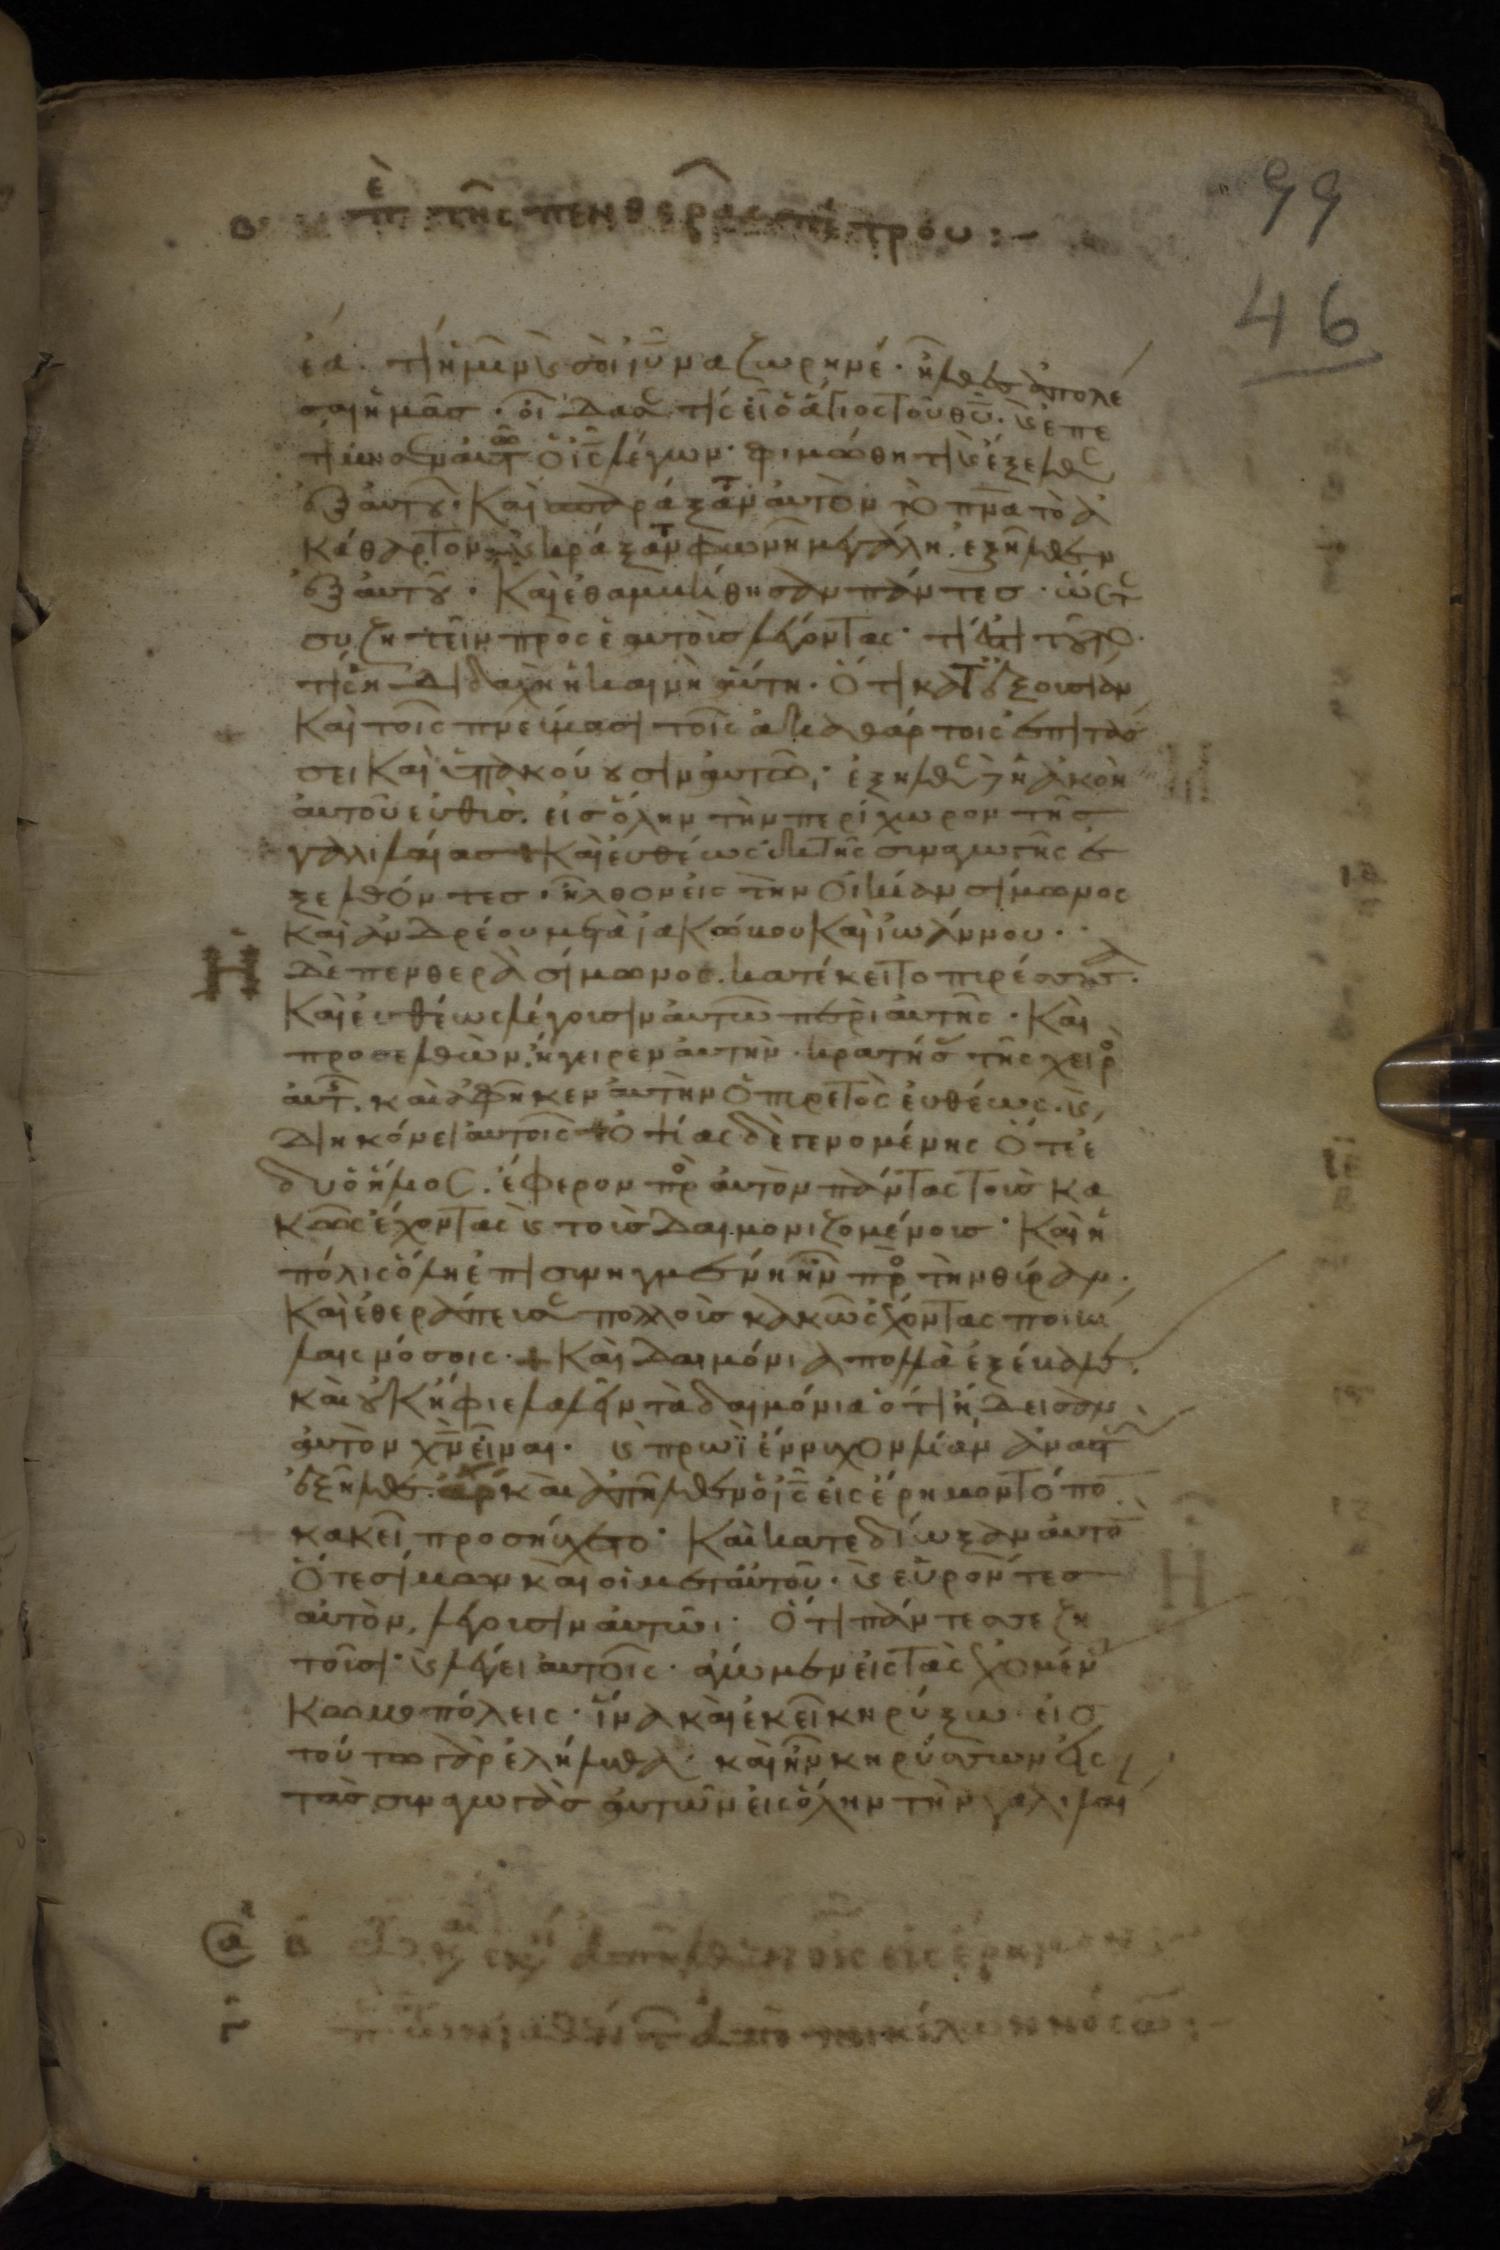 β περ τῆς πενθερᾶς πέτρου :-
99
46
ἐά. τί ἡμῖν ϗ σοὶ ἰῦ ναζωρηνέ. ἦλθες ἀπολέ
σαι ἡμᾶσ. οἶδά σε τίς εἶ ὁ ἅγιος τοῦ θῦ. ϗ ἐπε
τίμησεν αὐτῶ ὁ ις λέγων. φιμώθητι ϗ ἔξελθε
ἐξ αὐτοῦ. Καὶ σπαράξαν αὐτὸν τὸ πνα τὸ ἀ
κάθαρτον ϗ κράξαν φωνῆ μεγάλη. ἐξῆλθεν
ἐξ αὐτοῦ. Καὶ ἐθαμβήθησαν πάντεσ. ὥστε
συζητεῖν πρὸς ἑαυτοὺσ λέγοντας. τί ἐστι τοῦτο.
τίς ἡ διδαχὴ ἡ καινὴ αὕτη. ὅτι κατ' ἐξουσίαν
Καὶ τοῖς πνεύμασι τοῖς ἀκαθάρτοις ἐπιτάσ
σει Καὶ ὑπακούουσιν αὐτῶ. ἐξῆλθε δὲ ἡ ἀκοὴ
αὐτοῦ εὐθὺσ. εἰσ ὅλην τὴν περίχωρον τῆσ
γαλιλαίασ Καὶ εὐθέως ἐκ τῆς συναγωγῆς ἐ
ξελθόντεσ. ἦλθον εἰς τὴν οἰκίαν σίμωνος
Καὶ ἀνδρέου μετὰ ἰακώβου Καὶ ἰωάννου.
Ἡ δὲ πενθερὰ σίμωνος. κατέκειτο πυρέσσουσα.
Καὶ εὐθέως λέγουσιν αὐτῶ περὶ αὐτῆς. Καὶ
προσελθὼν ἤγειρεν αὐτὴν. κρατήσας τῆς χειρὸς
αὐτῆς. καὶ ἀφῆκεν αὐτὴν ὁ πυρετὸς εὐθέως. ϗ
διηκόνει αὐτοῖς Ὀψίας δὲ γενομένης ὅτε ἔ
δυ ὁ ἥλιος. ἔφερον πρὸς αὐτὸν πάντας τοὺσ κα
κῶς ἔχοντας ϗ τοὺσ δαιμονιζομένουσ. Καὶ ἡ
πόλις ὅλη ἐπισυνηγμένη ἦν πρὸς τὴν θύραν.
Καὶ ἐθεράπευσε πολλοὺσ κακῶς ἔχοντας ποικί
λαις νόσοις. Καὶ δαιμόνια πολλὰ ἐξέβαλε.
καὶ οὐκ ἤφιε λαλεῖν τὰ δαιμόνια ὅτι ἤδεισαν
αὐτὸν χν εἶναι. ϗ πρωῒ ἔννυχον λίαν ἀναστὰς
ἐξῆλθε. καὶ ἀπῆλθεν ὁ ις εἰς ἔρημον τόπο
κακεῖ προσηύχετο. Καὶ κατεδίωξαν αὐτὸ
Ὅτε σίμων καὶ οἱ μετ' αὐτοῦ. ϗ εὑρόντεσ
αὐτὸν, λέγουσιν αὐτῶι. Ὅτι πάντεσ σε ζη
τοῦσι. ϗ λέγει αὐτοῖς. ἄγωμεν εἰς τὰς ἐχομένας
Κωμοπόλεις. ἵνα καὶ ἐκεῖ κηρύξω. εἰσ
τοῦτο γὰρ ἐλήλυθα. καὶ ἦν κηρύσσων εἰς
τὰσ συναγωγὰσ αὐτῶν εἰς ὅλην τὴν γαλιλαί
ἀπῆλθεν ὁ ις εἰς ἔρημον
ἀπὸ ποικίλων νόσων :-